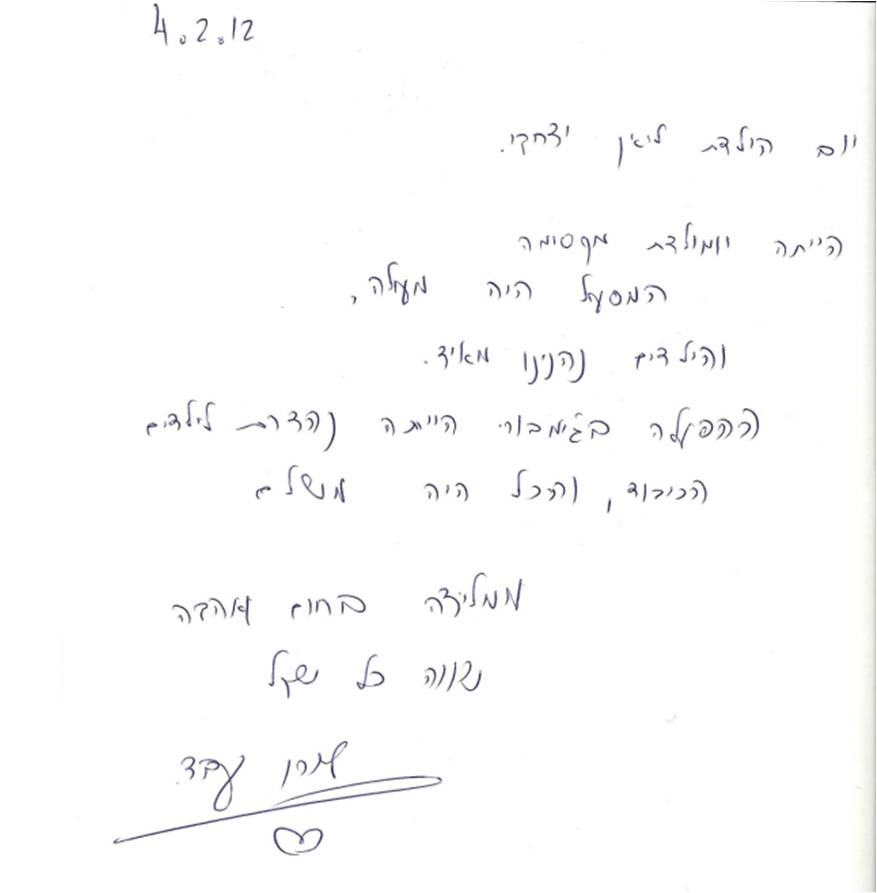 4.2.12
יום הולדת ליאן יצחקי.
הייתה יומולדת מקסימה
המפעיל היה מעולה,
והילדים נהינו מאיד.
ההפעלה בג'ימבורי הייתה נהדרת לילדים
הכיבוד, והכל היה מושלם
ממליצה בחום אהבה
שווה כל שקל